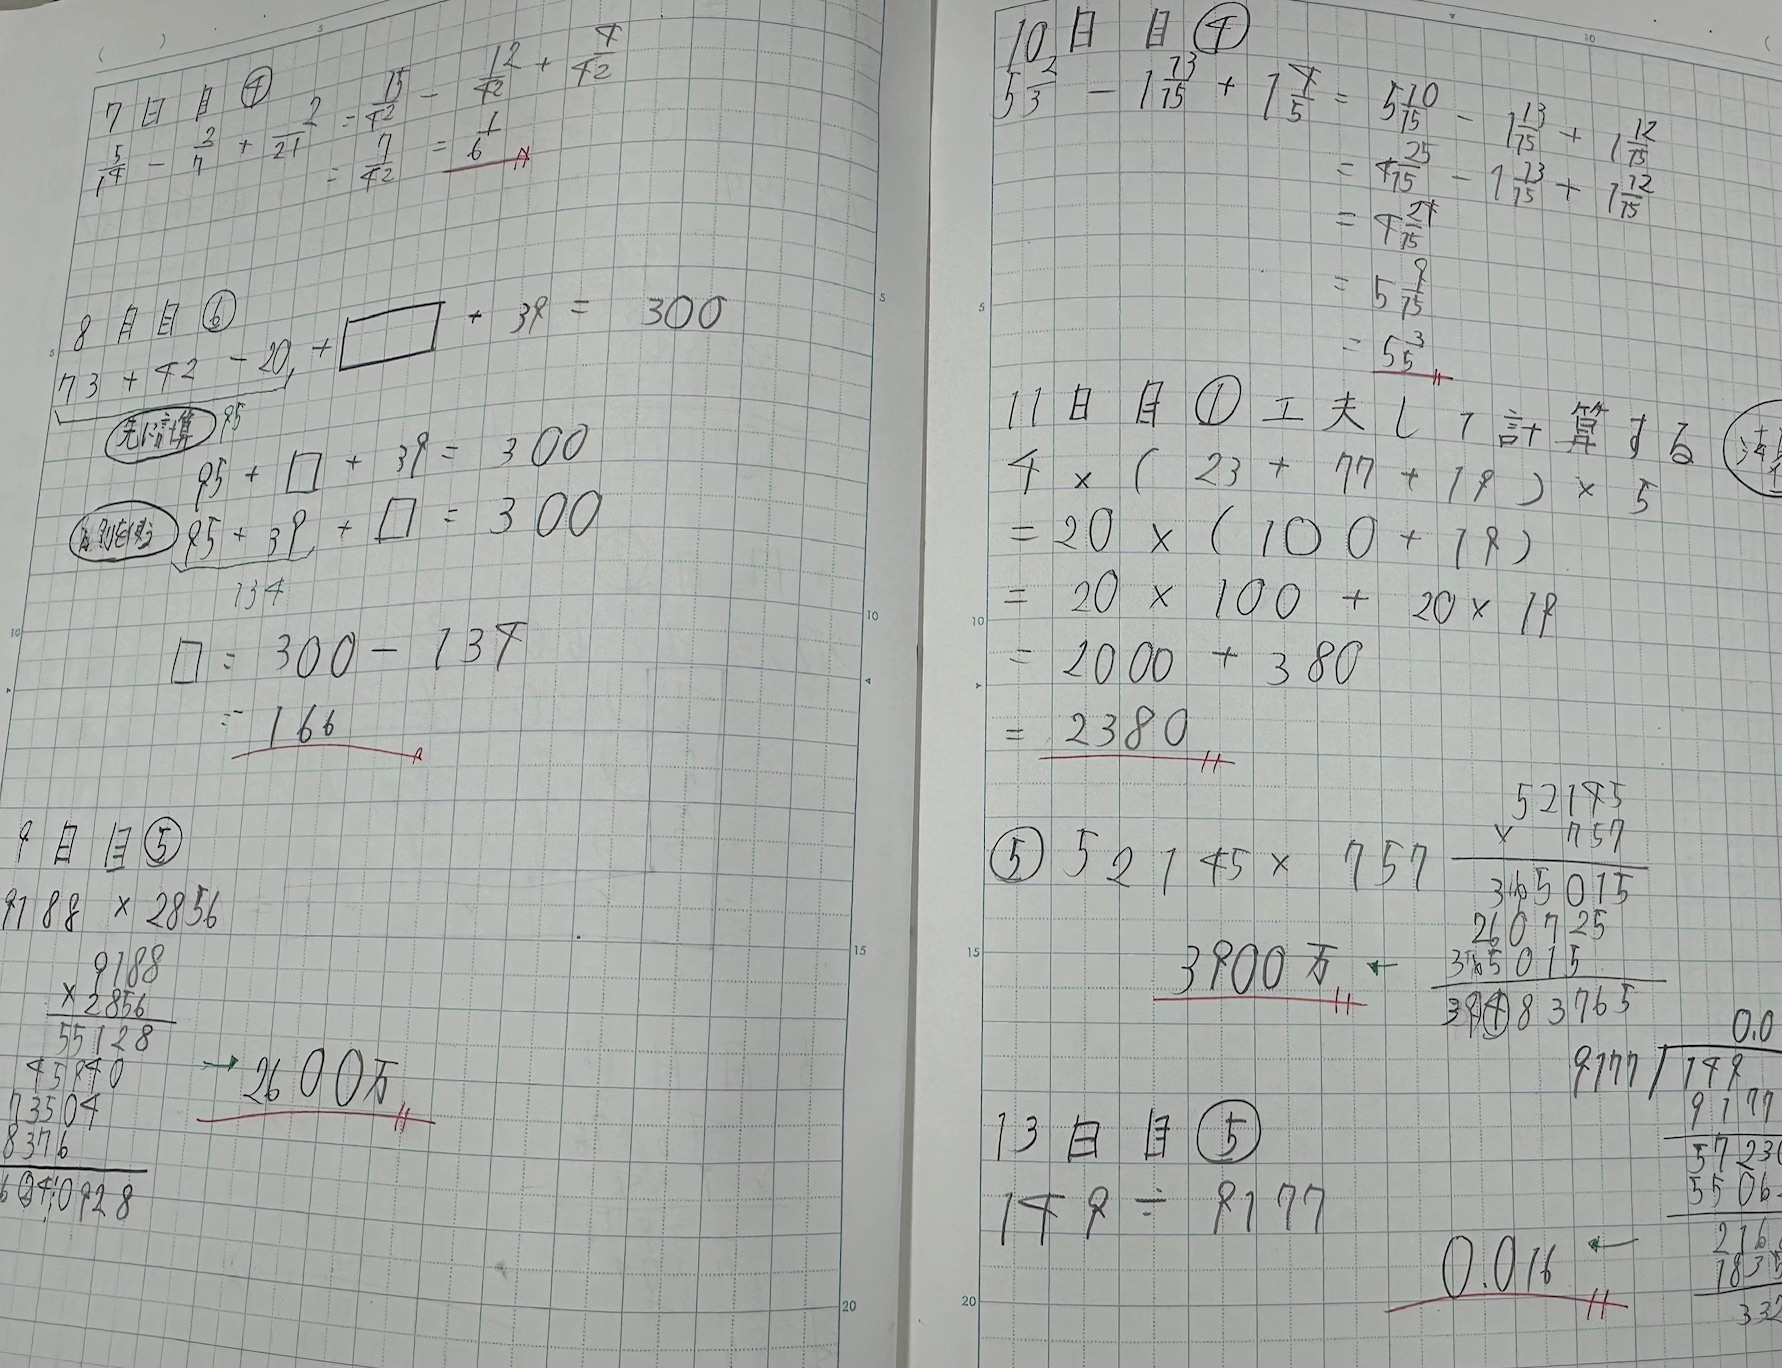 7日目④
5/14 - 2/7 + 2/21 = 15/42 - 12/42 + 4/42
= 7/42 = 1/6
8日目⑥
73 + 42 - 20 + □ + 39 = 300
先に計算 95
95 + □ + 39 = 300
95 + 39 + □ = 300
134
□ = 300 - 134
= 166
9日目⑤
9188 × 2856
9188
× 2856
55128
45940
73504
8376
2600万
10日目④
5 2/3 - 1 13/15 + 1 4/5 = 5 10/15 - 1 13/15 + 1 12/15
= 4 25/15 - 1 13/15 + 1 12/15
= 4 24/15
= 5 9/15
= 5 3/5
11日目①工夫して計算する
4 × (23 + 77 + 19) × 5
= 20 × (100 + 19)
= 20 × 100 + 20 × 19
= 2000 + 380
= 2380
⑤ 52145 × 757
52145
× 757
365015
260725
365015
39483765
3900万
13日目⑤
149 ÷ 9177
0.0
9177 149
9177
5723
5506
216
1835
332
0.016